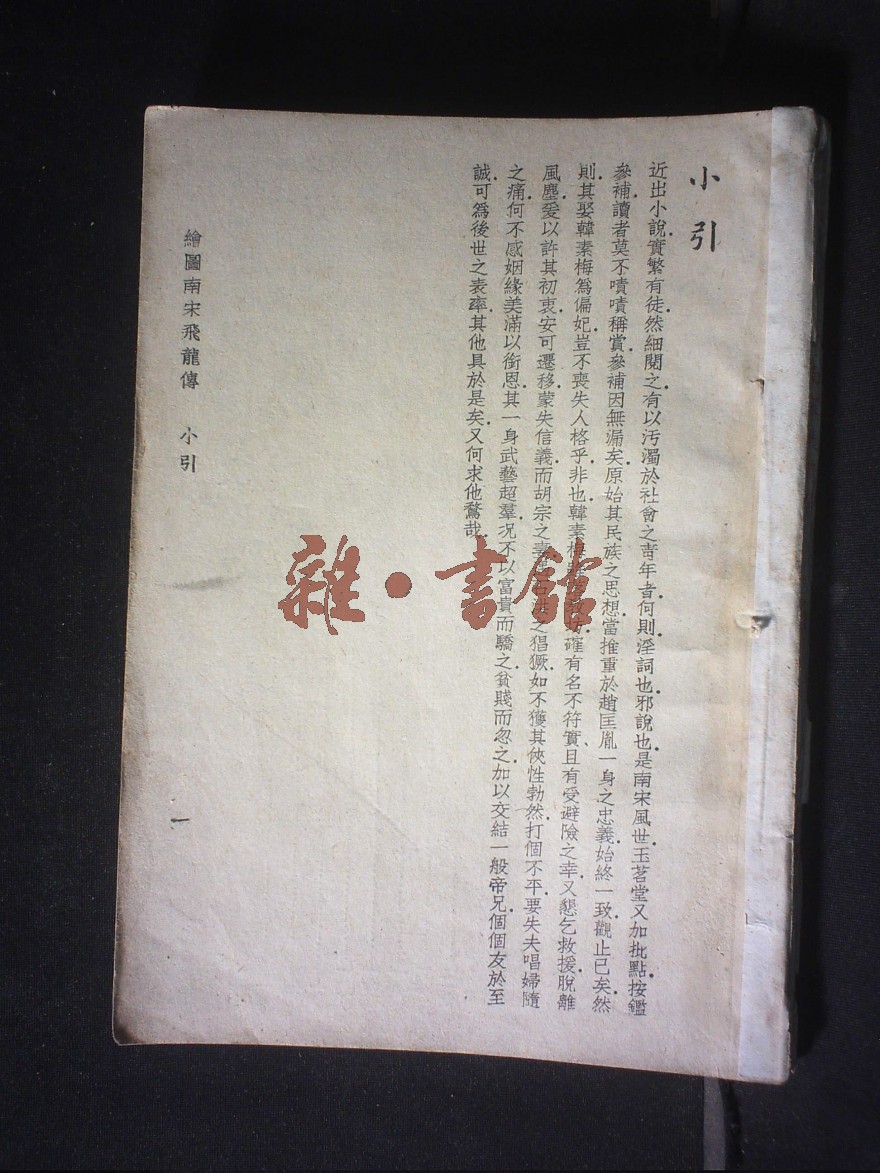 小引
近出小說實繁有徒然細閱之有以汚濁於社會之靑年者何則淫詞也邪說也是南宋風世玉茗堂又加批點按鑑
參補讀者莫不嘖嘖稱賞參補因無漏矣原始其民族之思想當推重於趙匡胤一身之忠義始終一致觀止已矣然
則其娶韓素梅爲偏妃豈不喪失人格乎非也韓素梅確有名不符實且有受避險之幸又懇乞救援脫離
風塵爰以許其初衷安可遷移蒙失信義而胡宗之妻之猖獗如不獲其俠性勃然打個不平要失夫唱婦隨
之痛何不感姻緣美滿以銜恩其一身武藝超羣况不以富貴而驕之貧賤而忽之加以交結一般帝兄個個友於至
誠可爲後世之表率其他具於是矣又何求他騖哉
繪圖南宋飛龍傳 小引
一
雜·書館